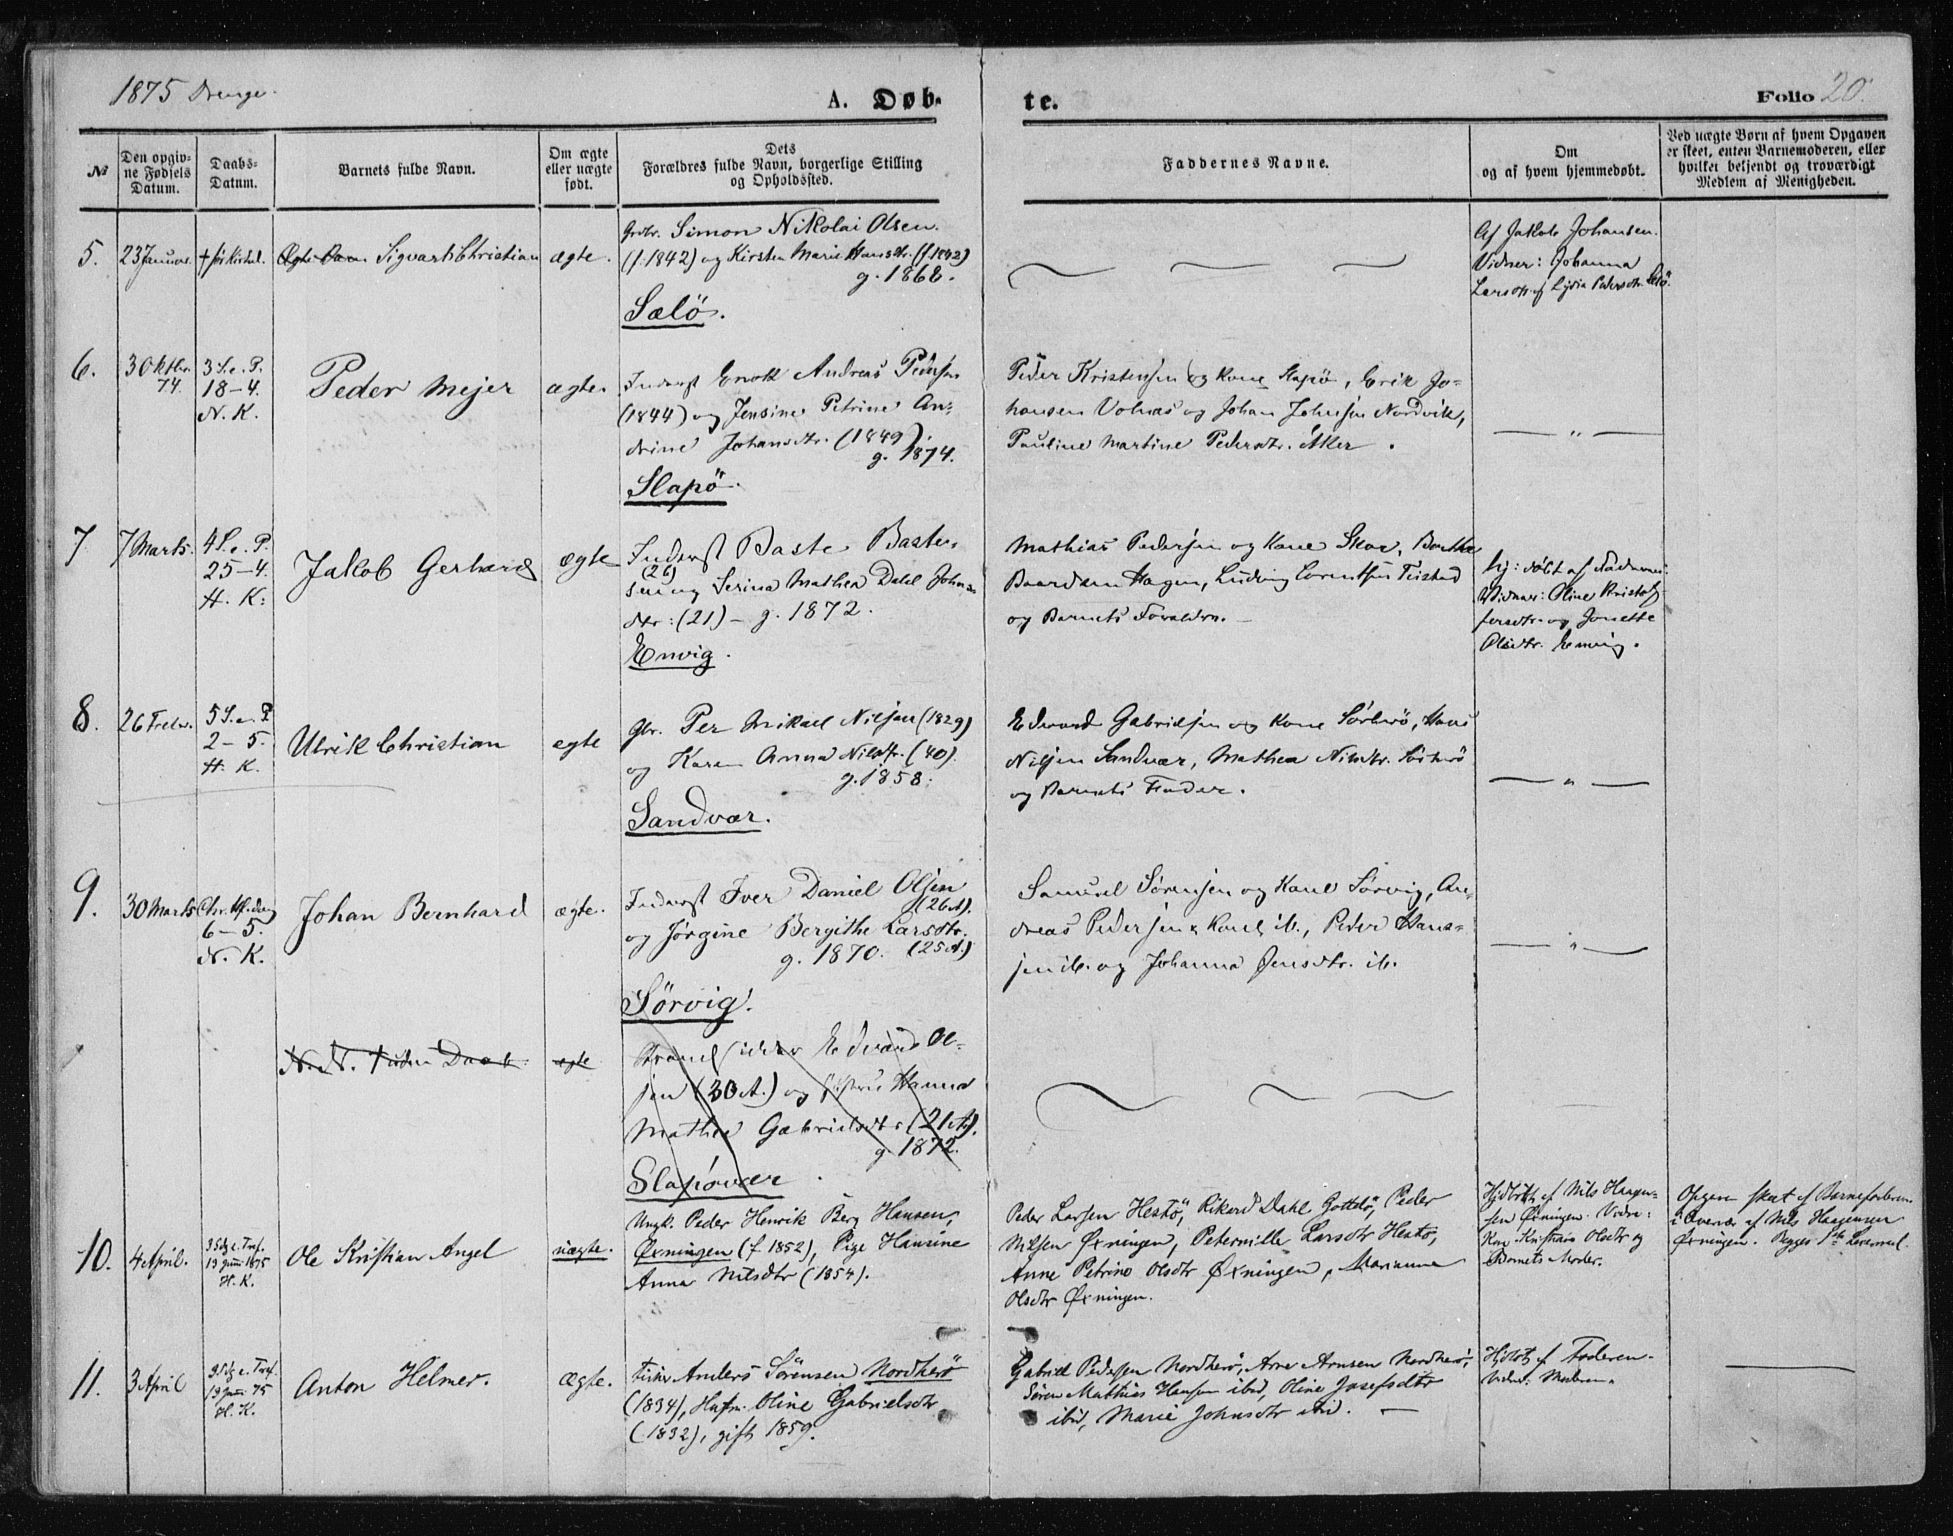 1875 Drenge.
A. Døb-
te.
Folio 20.
№
Den opgiv-
ne Fødsels
Datum.
Daabs-
Datum.
Barnets fulde Navn.
Om ægte
eller uægte
født.
Dets
Forældres fulde Navn, borgerlige Stilling
og Opholdssted.
Faddernes Navne.
Om
og af hvem hjemmedøbt.
Ved uægte Børn af hvem Opgaven
er skeet, enten Barnemoderen, eller
hvilket bekjendt og troværdigt
Medlem af Menigheden.
5.
23 Januar.
Sigvart Christian
ægte.
Simon Nikolai Olsen
(f. 1842) og Kirsten Marie Hansdtr. (f. 1842)
g. 1868.
Sælö.
Af Jakob Johansen.
Vidner: Johanna
Larsdtr. og Lydia Pedersdtr. Selö.
6.
3 Oktbr.
74.
3 S. e. P.
18-4.
N. K.
Peder Mejer
ægte.
Inderst Enok Andreas Pedersen
(1844) og Jensine Petrine An-
drine Johansdtr. (1849)
g. 1874.
Slapö.
Peder Kristensen og Kone Slapö, Erik Jo-
hansen Volnæs og Johan Johnsen Nordvik,
Pauline Martine Pedersdtr. Aker.
— " —
7
7 Marts.
4 S. e. P.
25-4.
H. K.
Jakob Gerhard
ægte
Inderst Baste Baste-
(26)
sen og Serina Mathea Dahl Johns
dtr: (21) - g. 1872.
Envig.
Mathias Pedersen og Kone Skar, Berthe
Hagen, Ludvig Lorentsen Teistad
og Barnets Forældre.
hj: døbt af Faderen:
Vidner: Oline Kristof-
fersdtr. og Jonette
Olsdtr. Envig.
8.
26 Febr.
5 S. e. P
2-5.
H. K.
Ulrik Christian
egte
Gbr. Per Mikael Nilsen (1829)
og Karen Anna Nilsdtr. (40).
g. 1858.
Sandvær.
Edvard Gabrielsen og Kone Sörherö, Hans
Nilsen Sandvær, Mathea Nilsdtr. Sörherö
og Barnets Fader.
— " —
9.
30 Marts
Chr. Hf. dag
6-5.
N. K.
Johan Bernhard
ægte.
Inderst Iver Daniel Olsen
(26 A).
og Jørgine Bergithe Larsdtr.
g. 1870. (25 A.)
Sörvig.
Samuel Sørensen og Kone Sörvig, An-
dreas Pedersen & Kone ib., Peder Hans-
sen ib. og Johanna Jensdtr. ib.
— " —
N. N. † uden Daab.
egte
Edvard Ol-
sen (30 A.) og Hustru Hanna
Mathea Gabrielsdtr (21 A).
g. 1872.
Slapövær
10.
4 April.
3 Sdg e. Tref.
13 Juni 1875
H. K.
Ole Kristian Angel
uægte.
Ungk. Peder Henrik Berg Hansen,
Øxningen (f 1852), Pige Hansine
Anna Nilsdtr (1854).
Peder Larsen Hestö, Rikard Dahl Gottelö, Peder
Nilsen Øxningen, Petermille Larsdtr Hestö,
Anne Petrine Olsdtr Øxningen, Marianna
Olsdtr Øxningen.
Hjdöbt af Nils Haagen-
sen Øxningen. Vidne:
Olsdtr og
Barnets Moder.
Opgaven skeet af Barnefaderen
i Overvær af Nils Haagensen
Øxningen. Begges 1ste Leiermaal.
11.
3 April
3 Sdg e. Tref.
13 Juni 75
H. K.
Anton Helmer.
ægte.
Fisker Anders Sörensen Nordherö
(1834), Husm. Oline Gabrielsdtr
(1832), gift 1859.
Gabriel Pedersen Nordherö, Arne Arnsen Nordherö,
Sören Mathias Hansen ibid, Oline Josefsdtr
ibid, Marie Johnsdtr ibid. —
Hjdöbt af Faderen.
Vidne: Moderen.